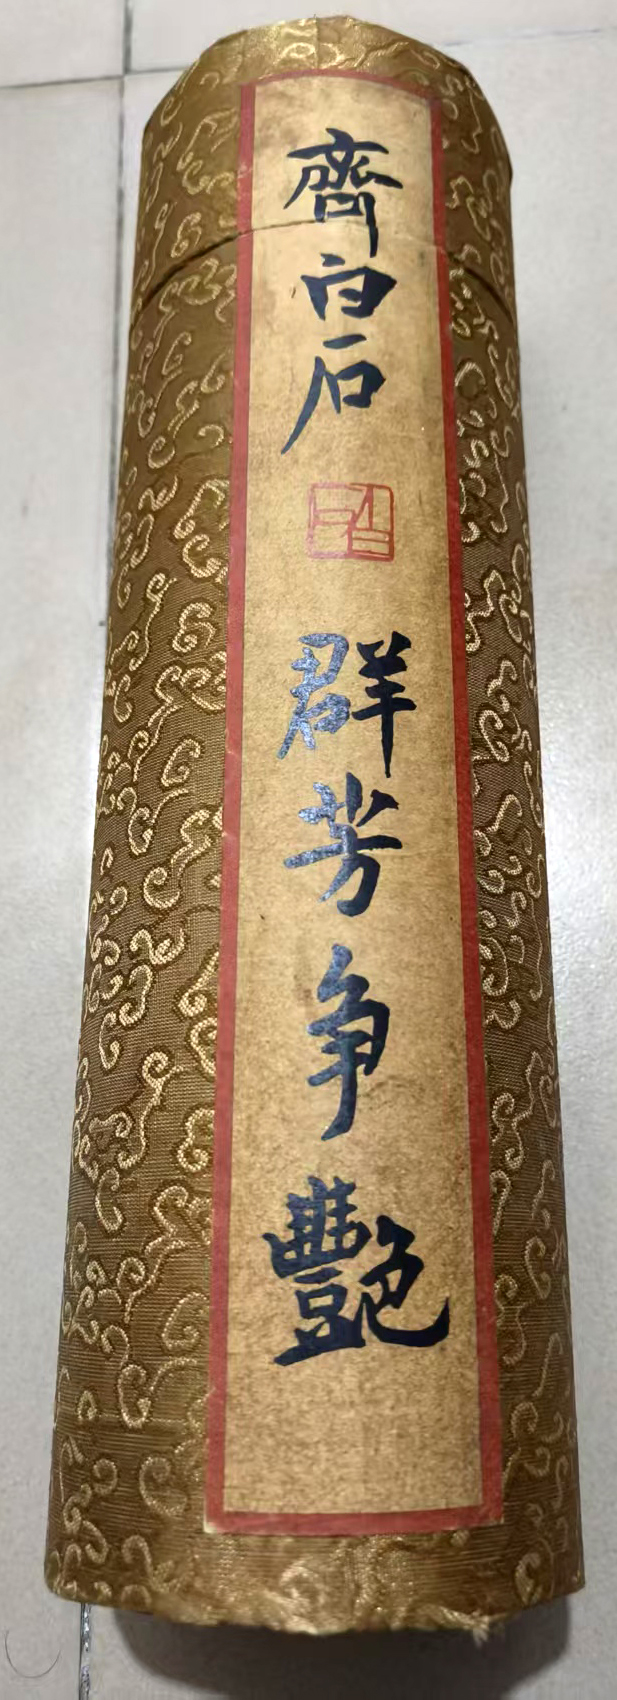 齊白石
群芳争豔